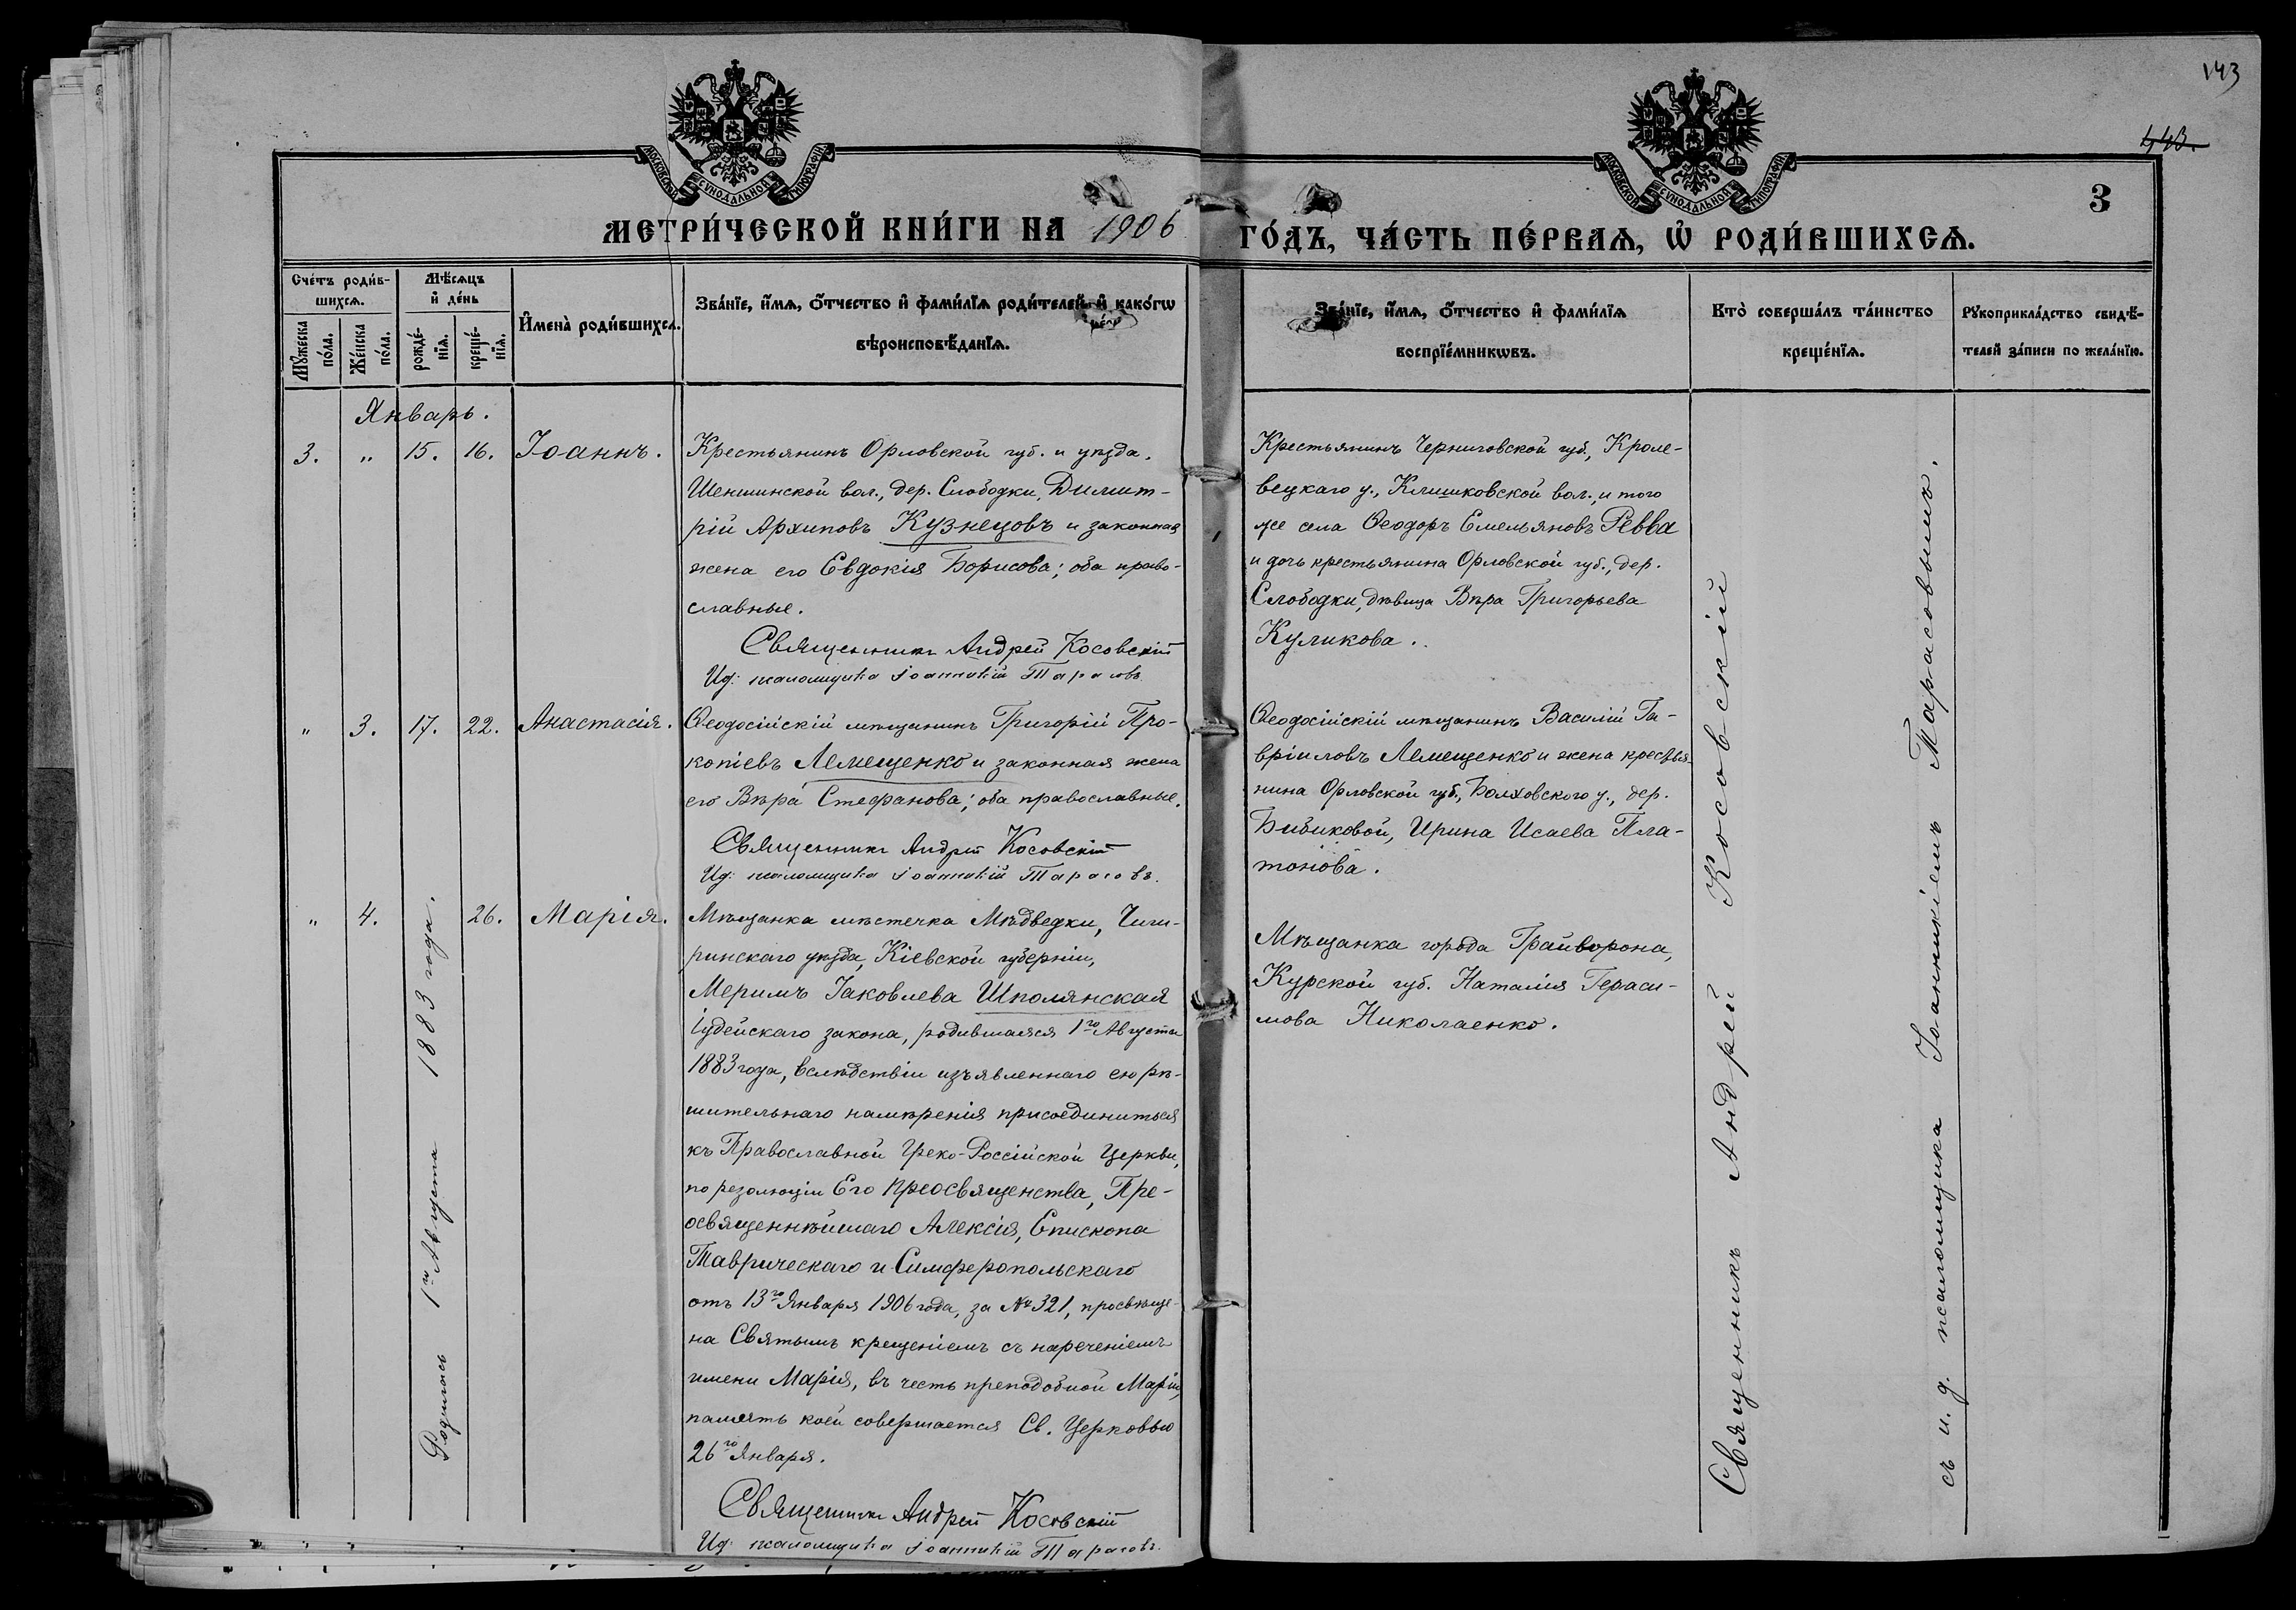 143
443.
МОСКОВСКОЙ СѴНОДАЛЬНОЙ ТИПОГРАФІИ
МОСКОВСКОЙ СѴНОДАЛЬНОЙ ТИПОГРАФІИ
3
МЕТРИ́ЧЕСКОЙ КНИ́ГИ НА 1906 ГО́ДЪ, ЧА́СТЬ ПЕ́РВАѦ, Ѡ҆ РОДИ́ВШИХСѦ.
Сче́тъ роди́в-
шихсѧ.
Мѣ́сѧцъ
и҆ де́нь
Мꙋ́жеска
по́ла.
Же́нска
по́ла.
рожде́-
нїѧ.
креще́-
нїѧ.
И҆мена̀ роди́вшихсѧ.
Зва́нїе, и҆́мѧ, ѻ҆́тчество и҆ фами́лїѧ роди́телей, и҆ како́гѡ
вѣроисповѣ́данїѧ.
Зва́нїе, и҆́мѧ, ѻ҆́тчество и҆ фами́лїѧ
воспрїе́мникѡвъ.
Кто̀ соверша́лъ та́инство
креще́нїѧ.
Рꙋкоприкла́дство свидѣ́-
телей за́писи по жела́нїю.
Январь.
3. „ 15. 16. Іоаннъ.
Крестьянинъ Орловской губ. и уѣзда,
Шеншинской вол., дер. Слободки, Димит-
рій Архиповъ Кузнецовъ и законная
жена его Евдокія Борисова; оба право-
славные.
Священникъ Андрей Косовскій
И.д. псаломщика Іоанникій Тарасовъ
Крестьянинъ Черниговской губ., Кроле-
вецкаго у., Клишковской вол., и того
же села Ѳеодоръ Емельяновъ Ревва
и дочь крестьянина Орловской губ., дер.
Слободки, дѣвица Вѣра Григорьева
Куликова.
„ 3. 17. 22. Анастасія.
Ѳеодосійскій мѣщанинъ Григорій Про-
копіевъ Лемещенко и законная жена
его Вѣра Стефанова; оба православные.
Священникъ Андрей Косовскій
И.д. псаломщика Іоанникій Тарасовъ.
Ѳеодосійскій мѣщанинъ Василій Га-
вріиловъ Лемещенко и жена крестья-
нина Орловской губ., Болховского у., дер.
Бибиковой, Ирина Исаева Пла-
тонова.
„ 4. Родилась 1го Августа 1883 года. 26. Марія.
Мѣщанка мѣстечка Мѣдведки, Чиги-
ринскаго уѣзда, Кіевской губерніи,
Меримъ Іаковлева Школянская
іудейскаго закона, родившаяся 1го Августа
1883 года, вслѣдствіи изъявленнаго ею рѣ-
шительнаго намѣренія присоединиться
къ Православной Греко-Россійской Церкви,
по резолюціи Его Преосвященства, Пре-
освященнѣйшаго Алексія, Епископа
Таврическаго и Симферопольскаго
отъ 13го Января 1906 года, за № 321, просвѣще-
на Святымъ крещеніемъ съ нареченіемъ
имени Марія, въ честь преподобной Маріи,
память коей совершается Св. Церковью
26го Января.
Священникъ Андрей Косовскій
И.д. псаломщика Іоанникій Тарасовъ.
Мѣщанка города Грайворона,
Курской губ. Наталія Гераси-
мова Николаенко.
Священникъ Андрей Косовскій
съ и. д. псаломщика Іоанникіемъ Тарасовымъ.